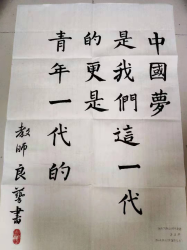 中國夢
是我們這一代
的更是
青年一代的
教師 良藝書